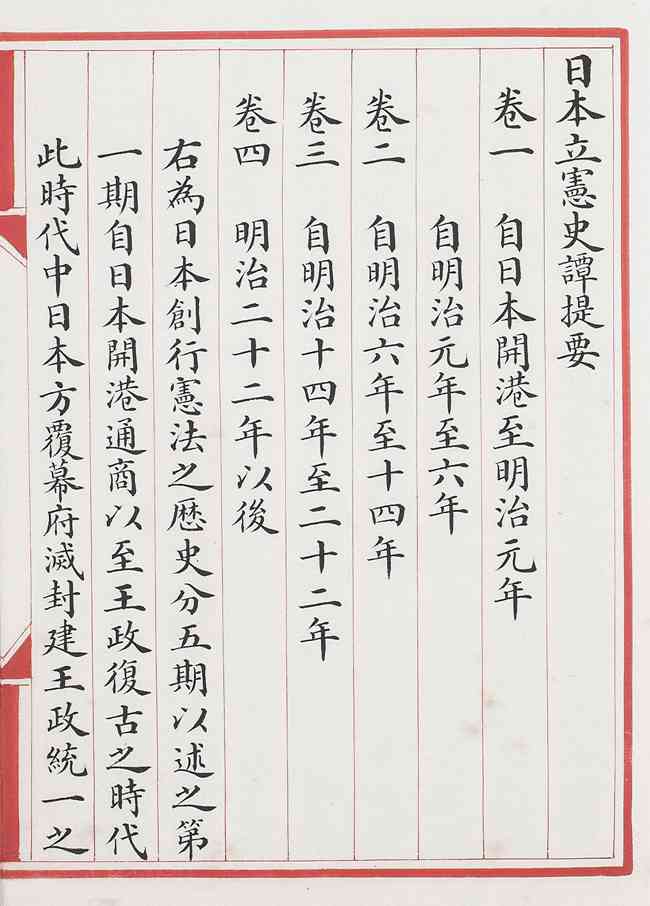 日本立憲史譚提要
卷一　自日本開港至明治元年
自明治元年至六年
卷二　自明治六年至十四年
卷三　自明治十四年至二十二年
卷四　明治二十二年以後
右為日本創行憲法之歷史分五期以述之第
一期自日本開港通商以至王政復古之時代
此時代中日本方覆幕府滅封建王政統一之